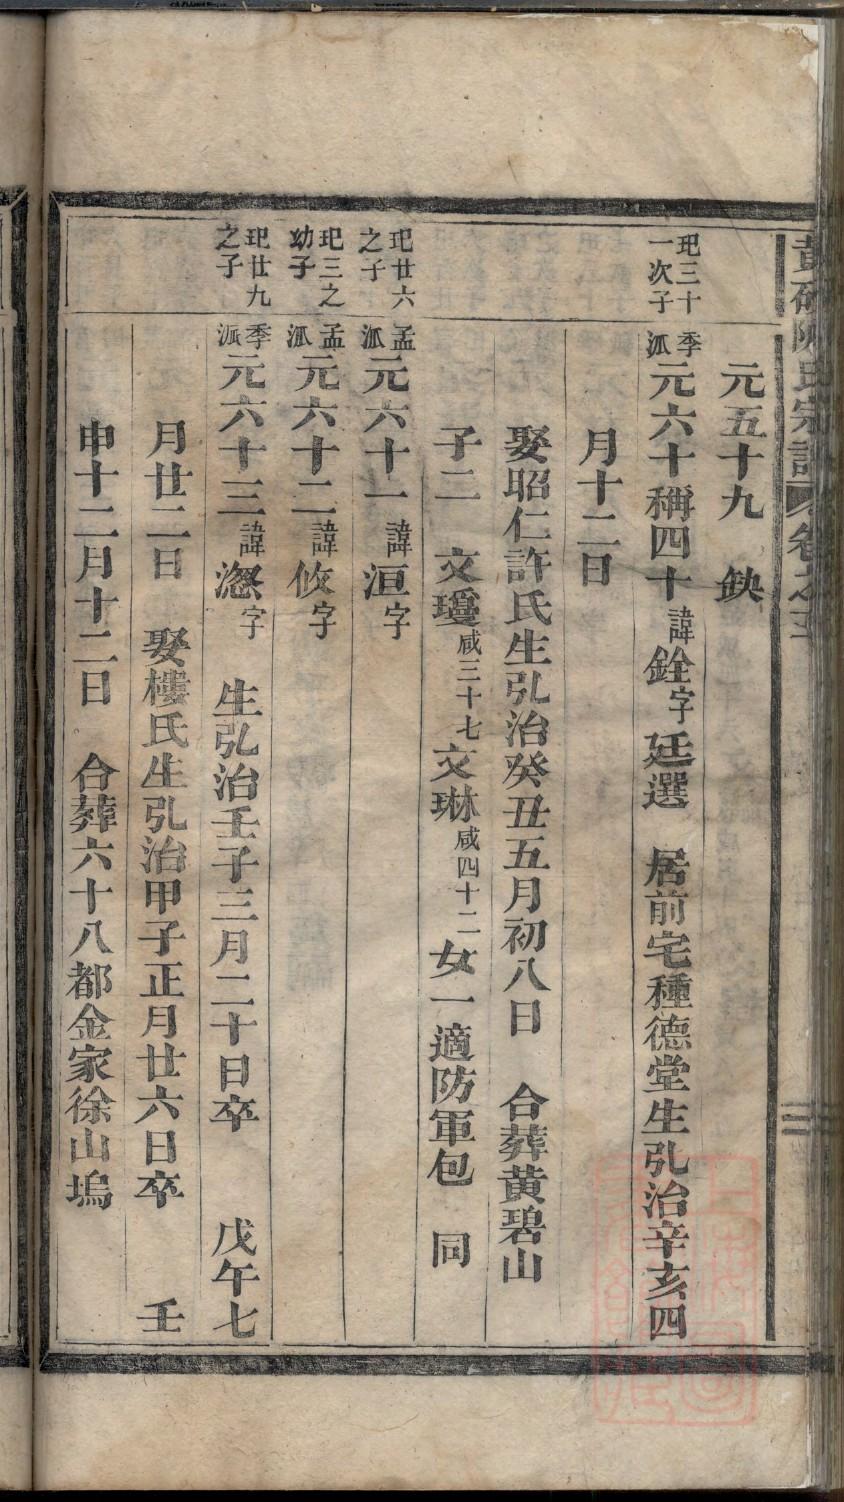 黃碧陳氏宗譜 卷之五
元五十九 缺
玘三十一次子 季派元六十稱四十諱銓字廷選 居前宅種德堂生弘治辛亥四
月十二日
娶昭仁許氏生弘治癸丑五月初八日 合葬黃碧山
子二 文瓊咸三十七文琳咸四十二女一適防軍包 同
玘廿六之子 孟派元六十一諱洹字
玘三之幼子 孟派元六十二諱攸字
玘廿九之子 季派元六十三諱字 生弘治壬子三月二十日卒 戊午七
月廿二日 娶樓氏生弘治甲子正月廿六日卒 壬
申十二月十二日 合葬六十八都金家徐山塢